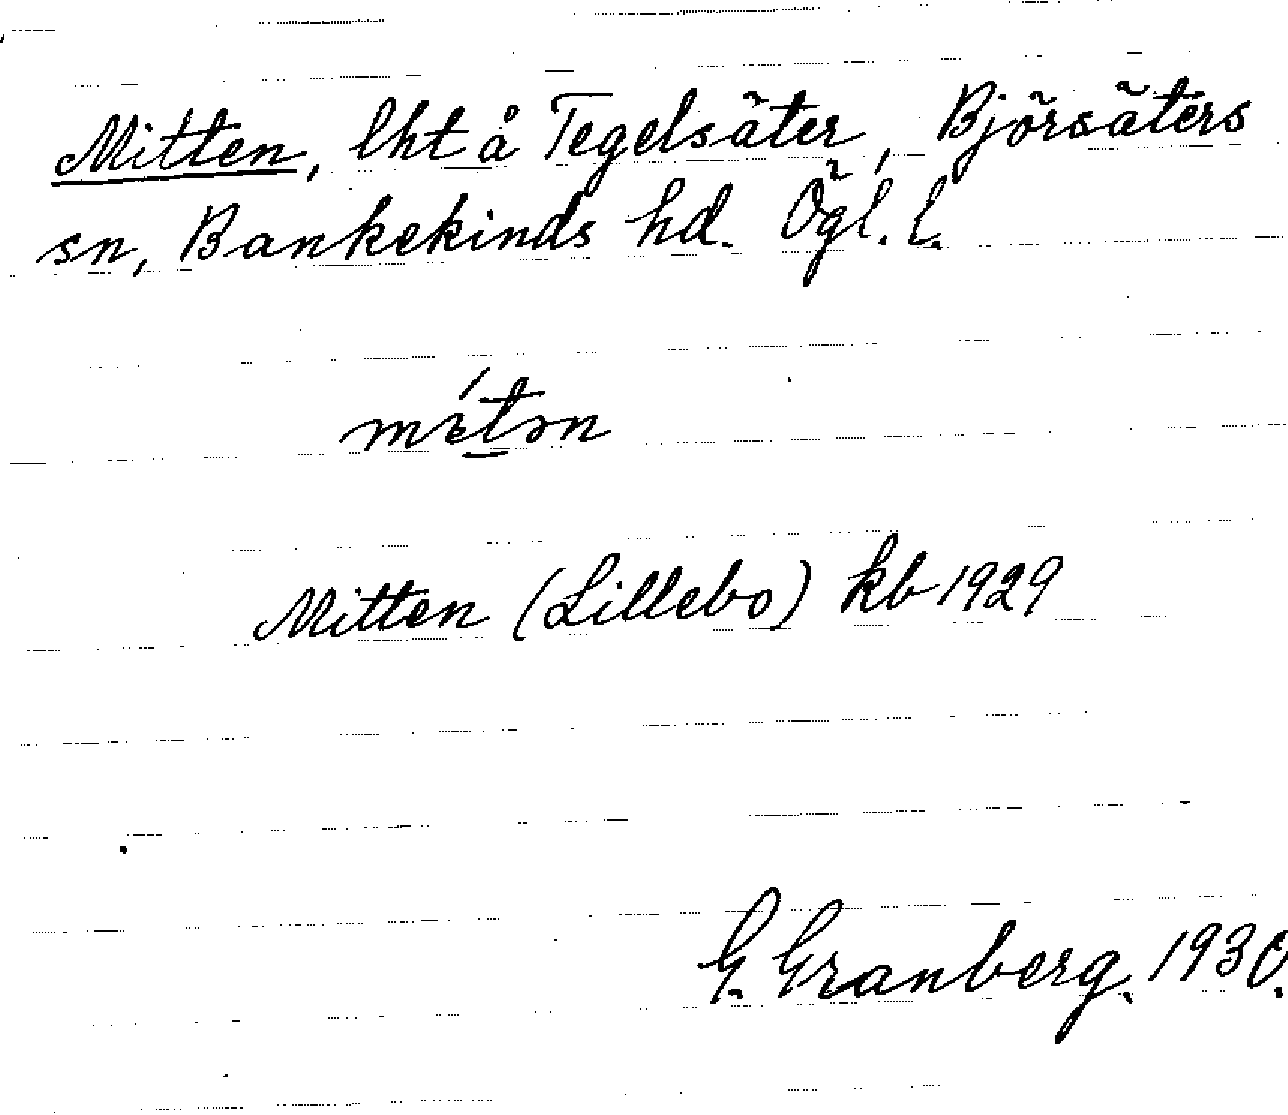 Mitten, lht å Tegelsäter, Björsäters
sn, Bankekinds hd. Ögl. l.
métən
Mitten (Lillebo) kb 1929
G. Granberg. 1930.